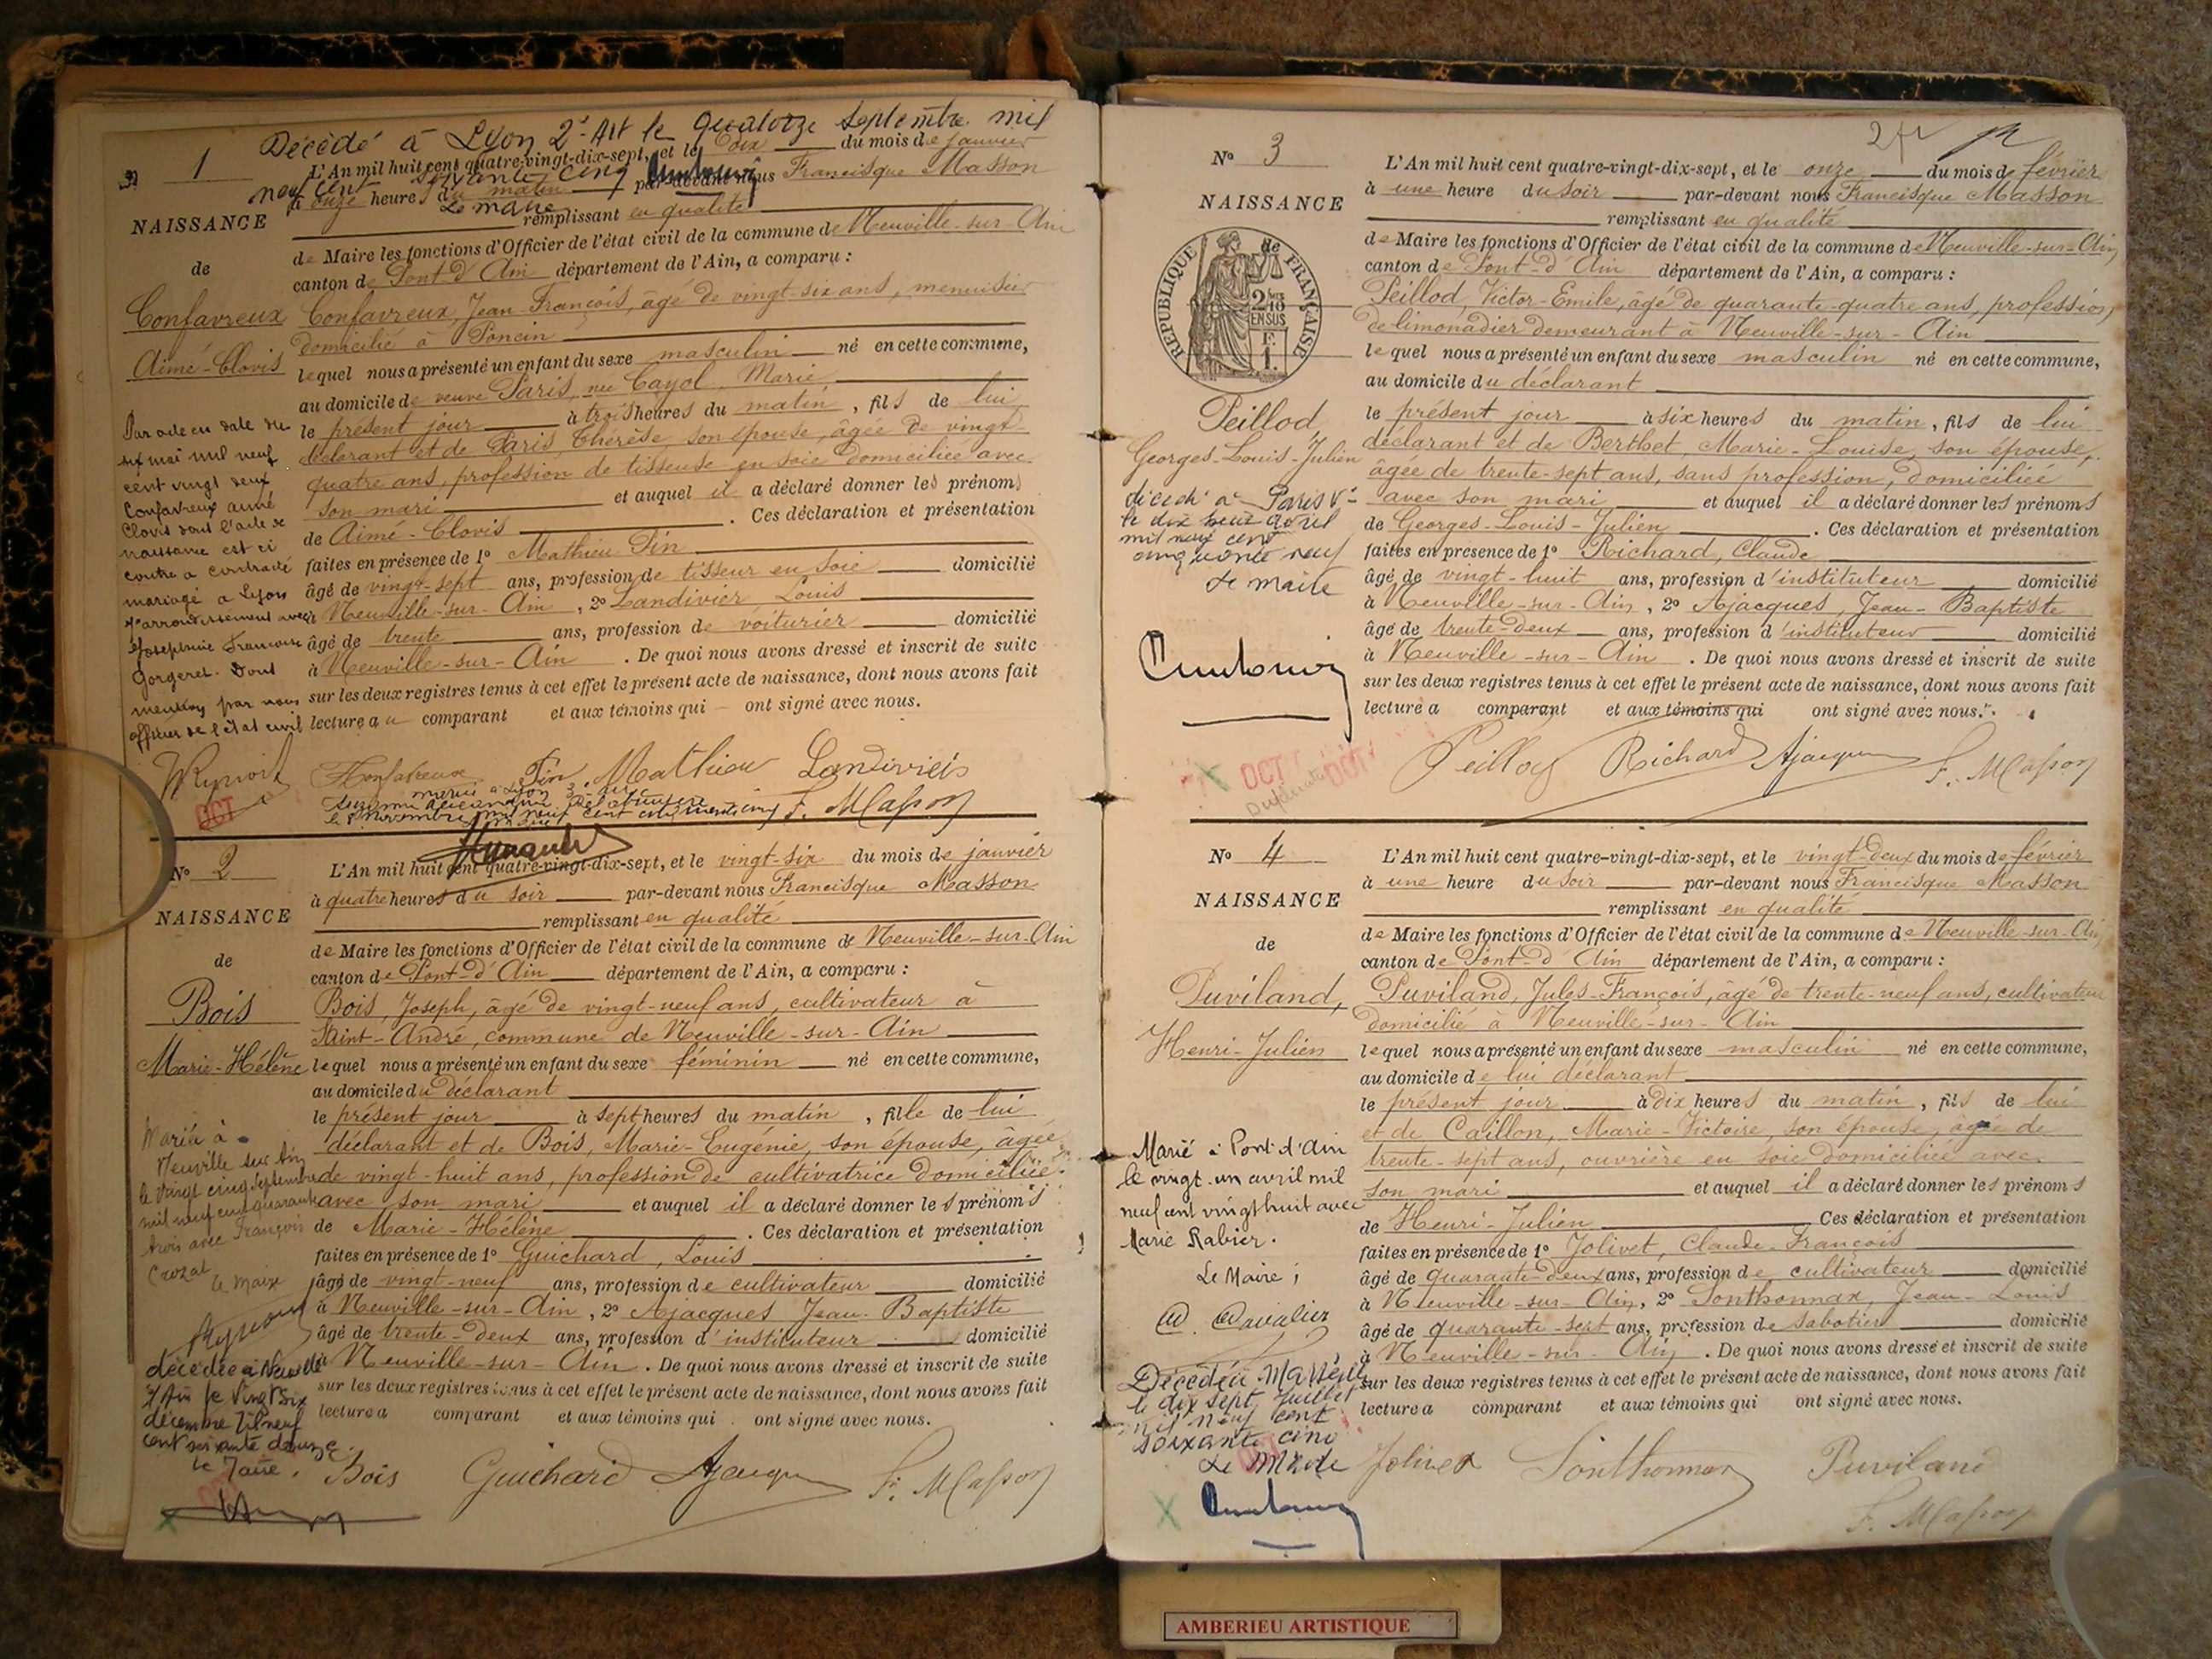 Décédé à Lyon 2e Art le quatorze septembre mil
neuf cent soixante cinq
Le maire
No 1
NAISSANCE
de
Confavreux
Aimé-Clovis
Par acte en date du
six mai mil neuf
cent vingt deux
Confavreux Aimé
Clovis dont l'acte de
naissance est ci
contre a contracté
mariage à Lyon
arrondissement avec
Joséphine Françoise
Gorgeret. Dont
mention par nous
officier de l'état civil
L'An mil huit cent quatre-vingt-dix-sept, et le dix du mois de janvier
à onze heures du matin par-devant nous Francisque Masson
remplissant en qualité
de Maire les fonctions d'Officier de l'état civil de la commune de Neuville-sur-Ain
canton de Pont-d'Ain département de l'Ain, a comparu :
Confavreux, Jean-François, âgé de vingt-six ans, menuisier
domicilié à Poncin
lequel nous a présenté un enfant du sexe masculin né en cette commune,
au domicile de veuve Paris, née Cayol Marie,
le présent jour à trois heures du matin, fils de lui
déclarant et de Paris, Thérèse son épouse, âgée de vingt
quatre ans, profession de tisseuse en soie domiciliée avec
son mari et auquel il a déclaré donner les prénoms
de Aimé-Clovis . Ces déclaration et présentation
faites en présence de 1o Mathieu Pin
âgé de vingt-sept ans, profession de tisseur en soie domicilié
à Neuville-sur-Ain, 2o Landivier Louis
âgé de trente ans, profession de voiturier domicilié
à Neuville-sur-Ain. De quoi nous avons dressé et inscrit de suite
sur les deux registres tenus à cet effet le présent acte de naissance, dont nous avons fait
lecture au comparant et aux témoins qui ont signé avec nous.
Confavreux Pin Mathieu Landivier
F. Masson
marié à Lyon 3e
le 8 novembre mil neuf cent
OCT
No 2
NAISSANCE
de
Bois
Marie-Hélène
Mariée à
Neuville sur Ain
le vingt cinq septembre
mil neuf cent quarante
trois avec François
Crozat
Le Maire
décédée à Neuville
s/Ain le vingt six
décembre mil neuf
cent soixante douze.
Le Maire,
L'An mil huit cent quatre-vingt-dix-sept, et le vingt-six du mois de janvier
à quatre heures du soir par-devant nous Francisque Masson
remplissant en qualité
de Maire les fonctions d'Officier de l'état civil de la commune de Neuville-sur-Ain
canton de Pont-d'Ain département de l'Ain, a comparu :
Bois, Joseph, âgé de vingt-neuf ans, cultivateur à
Saint-André, commune de Neuville-sur-Ain
lequel nous a présenté un enfant du sexe féminin né en cette commune,
au domicile du déclarant
le présent jour à sept heures du matin, fille de lui
déclarant et de Bois, Marie-Eugénie, son épouse, âgée
de vingt-huit ans, profession de cultivatrice domiciliée
avec son mari et auquel il a déclaré donner les prénoms
de Marie-Hélène . Ces déclaration et présentation
faites en présence de 1o Guichard, Louis
âgé de vingt-neuf ans, profession de cultivateur domicilié
à Neuville-sur-Ain, 2o Ajacques Jean-Baptiste
âgé de trente-deux ans, profession d'instituteur domicilié
à Neuville-sur-Ain. De quoi nous avons dressé et inscrit de suite
sur les deux registres tenus à cet effet le présent acte de naissance, dont nous avons fait
lecture a comparant et aux témoins qui ont signé avec nous.
Bois Guichard Ajacques F. Masson
No 3
NAISSANCE
de
RÉPUBLIQUE FRANÇAISE
2/10
EN SUS
1F.
Peillod,
Georges-Louis-Julien
décédé à Paris V
le dix huit avril
mil neuf cent
cinquante neuf
Le maire
L'An mil huit cent quatre-vingt-dix-sept, et le onze du mois de février
à une heure du soir par-devant nous Francisque Masson
remplissant en qualité
de Maire les fonctions d'Officier de l'état civil de la commune de Neuville-sur-Ain
canton de Pont-d'Ain département de l'Ain, a comparu :
Peillod, Victor-Emile, âgé de quarante-quatre ans, profession
de limonadier demeurant à Neuville-sur-Ain
lequel nous a présenté un enfant du sexe masculin né en cette commune,
au domicile du déclarant
le présent jour à six heures du matin, fils de lui
déclarant et de Berthet, Marie-Louise, son épouse,
âgée de trente-sept ans, sans profession, domiciliée
avec son mari et auquel il a déclaré donner les prénoms
de Georges-Louis-Julien . Ces déclaration et présentation
faites en présence de 1o Richard, Claude
âgé de vingt-huit ans, profession d'instituteur domicilié
à Neuville-sur-Ain, 2o Ajacques, Jean-Baptiste
âgé de trente-deux ans, profession d'instituteur domicilié
à Neuville-sur-Ain. De quoi nous avons dressé et inscrit de suite
sur les deux registres tenus à cet effet le présent acte de naissance, dont nous avons fait
lecture a comparant et aux témoins qui ont signé avec nous.
Peillod Richard Ajacques F. Masson
OCT
OCT
No 4
NAISSANCE
de
Puviland,
Henri-Julien
Marié à Pont d'Ain
le vingt-un avril mil
neuf cent vingt huit avec
Marie Rabier.
Le Maire,
Décédé à Marseille
le dix sept juillet
mil neuf cent
soixante cinq
Le Maire
L'An mil huit cent quatre-vingt-dix-sept, et le vingt-deux du mois de février
à une heure du soir par-devant nous Francisque Masson
remplissant en qualité
de Maire les fonctions d'Officier de l'état civil de la commune de Neuville-sur-Ain
canton de Pont-d'Ain département de l'Ain, a comparu :
Puviland, Jules-François, âgé de trente-neuf ans, cultivateur
domicilié à Neuville-sur-Ain
lequel nous a présenté un enfant du sexe masculin né en cette commune,
au domicile de lui déclarant
le présent jour à dix heures du matin, fils de lui
et de Caillon, Marie-Victoire, son épouse, âgée de
trente-sept ans, ouvrière en soie domiciliée avec
son mari et auquel il a déclaré donner les prénoms
de Henri-Julien Ces déclaration et présentation
faites en présence de 1o Jolivet, Claude-François
âgé de quarante-deux ans, profession de cultivateur domicilié
à Neuville-sur-Ain, 2o Sonthonnax, Jean-Louis
âgé de quarante-sept ans, profession de sabotier domicilié
à Neuville-sur-Ain. De quoi nous avons dressé et inscrit de suite
sur les deux registres tenus à cet effet le présent acte de naissance, dont nous avons fait
lecture a comparant et aux témoins qui ont signé avec nous.
Jolivet Sonthonnax Puviland
F. Masson
AMBERIEU ARTISTIQUE